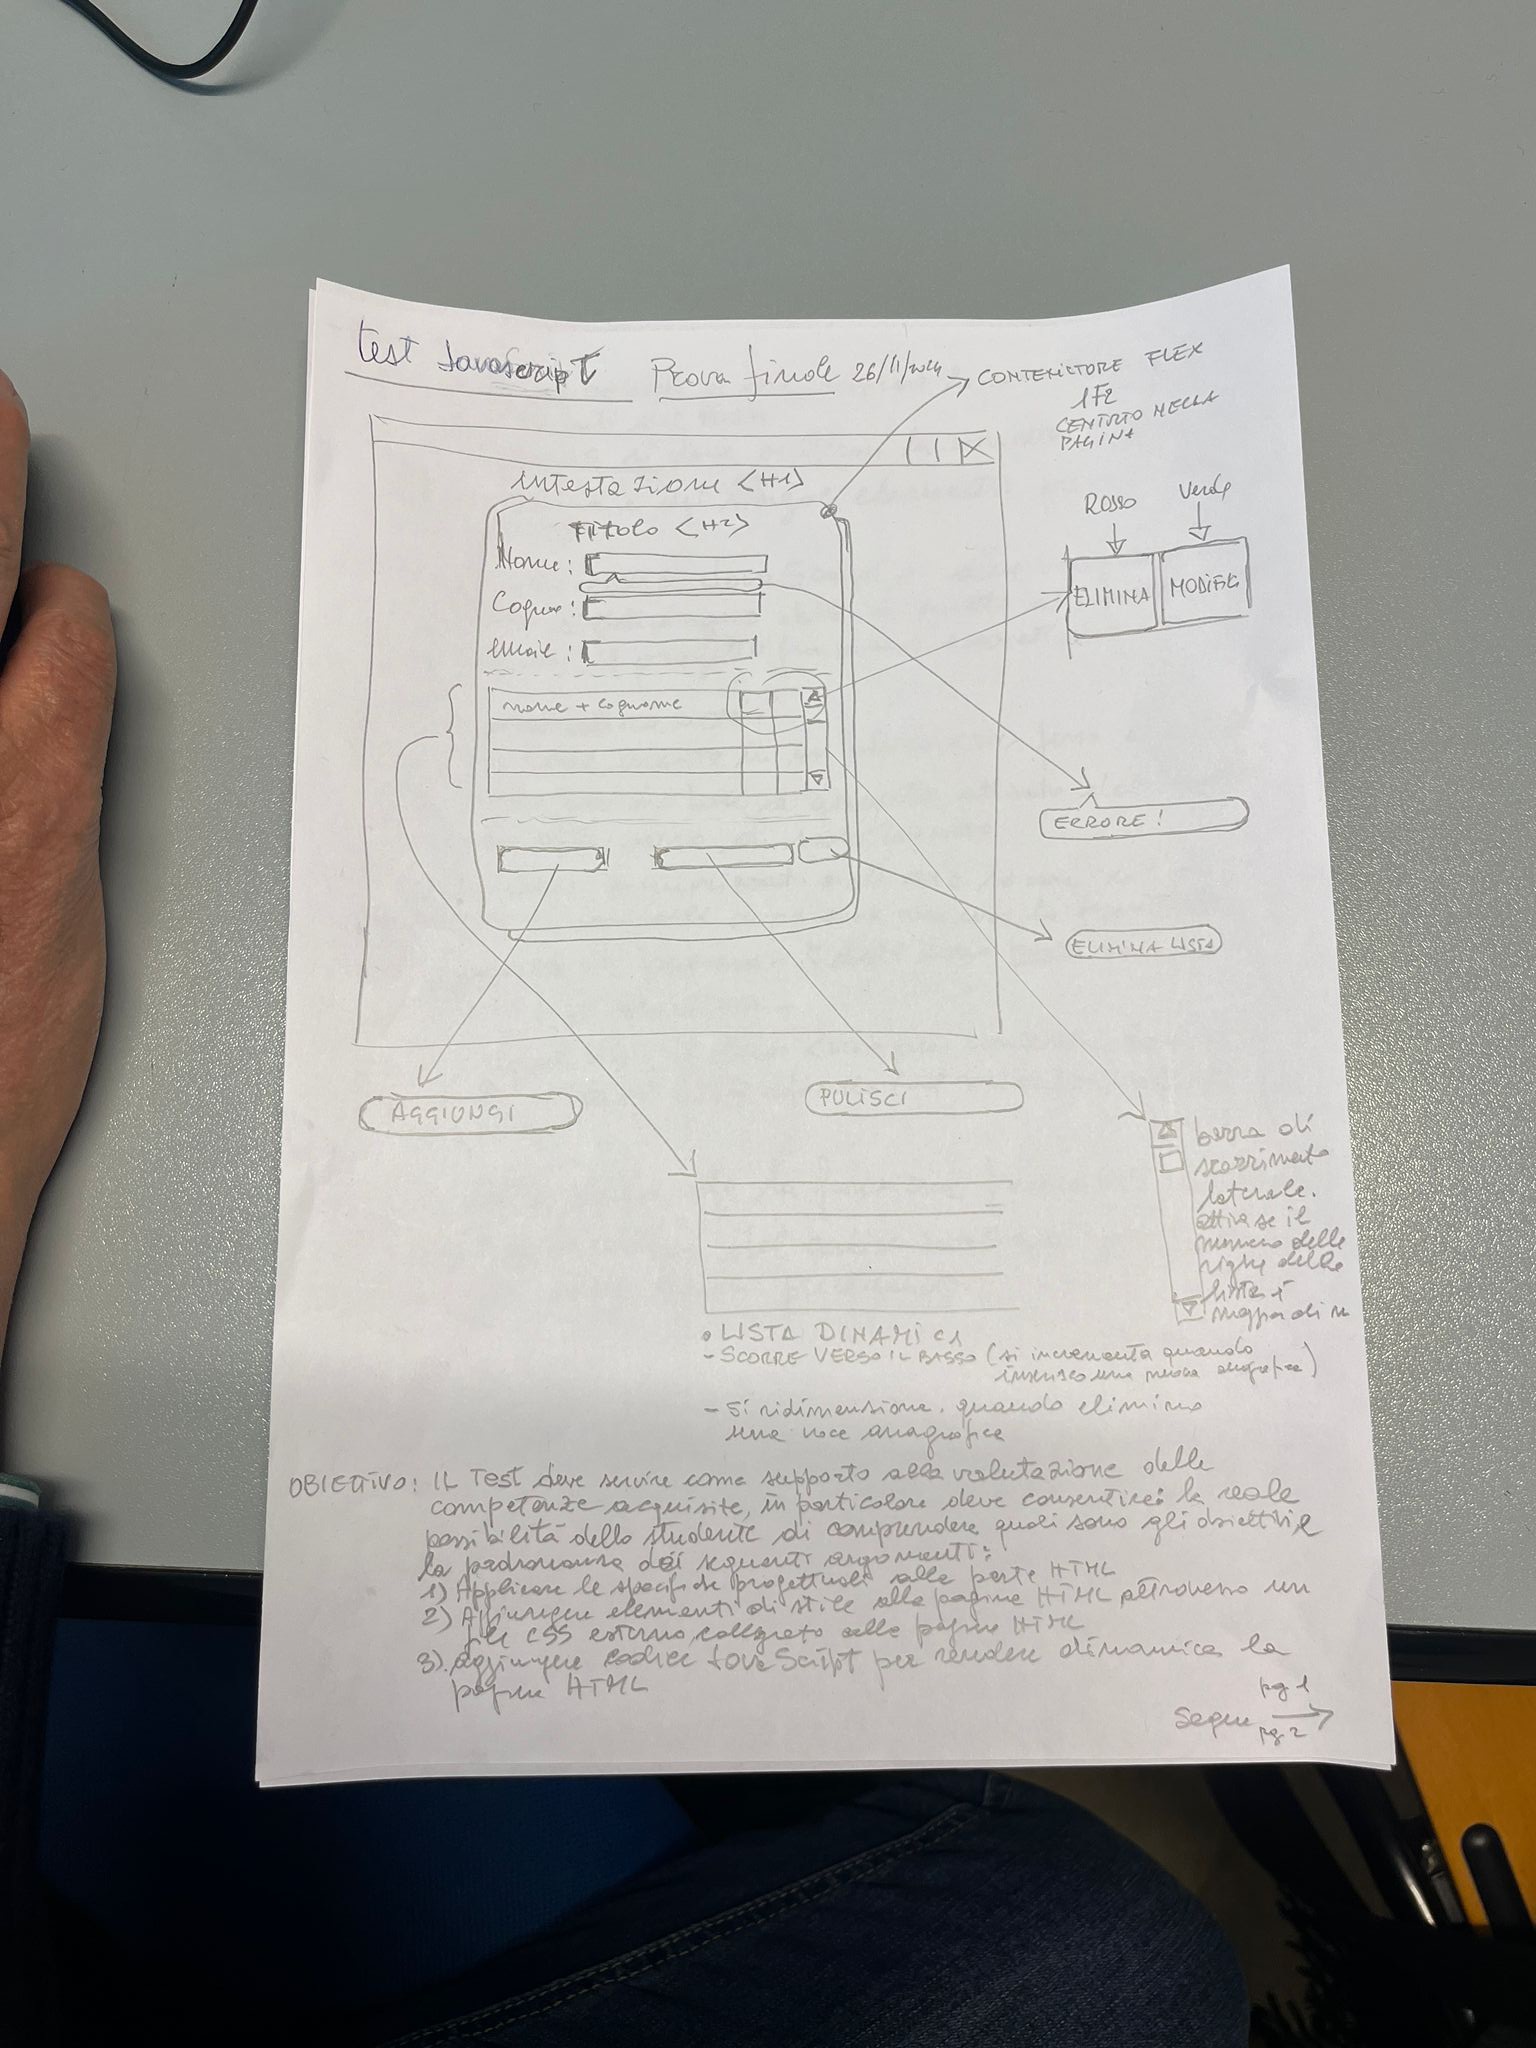 test JavaScript Prova finale 26/11/2024
CONTENITORE FLEX
CENTRATO NELLA
PAGINA
Intestazione <H1>
Titolo <H2>
Nome:
Cognome:
email:
nome + cognome
ROSSO
Verde
ELIMINA
MODIFICA
ERRORE!
ELIMINA LISTA
AGGIUNGI
PULISCI
barra di
scorrimento
laterale.
attiva se il
numero delle
righe della
lista è
maggiore di
• LISTA DINAMICA
- SCORRE VERSO IL BASSO (si incrementa quando
inserisco una nuova anagrafica)
- Si ridimensiona quando elimino
una voce anagrafica
OBIETTIVO: IL Test deve servire come supporto alla valutazione delle
competenze acquisite, in particolare deve consentire: la reale
possibilità dello studente di comprendere quali sono gli obiettivi e
la padronanza dei seguenti argomenti:
1) Applicare le specifiche progettuali alla parte HTML
2) Aggiungere elementi di stile alla pagina HTML attraverso un
file CSS esterno collegato alla pagina HTML
3) aggiungere codice JavaScript per rendere dinamica la
pagina HTML
pg 1
Segue
pg 2